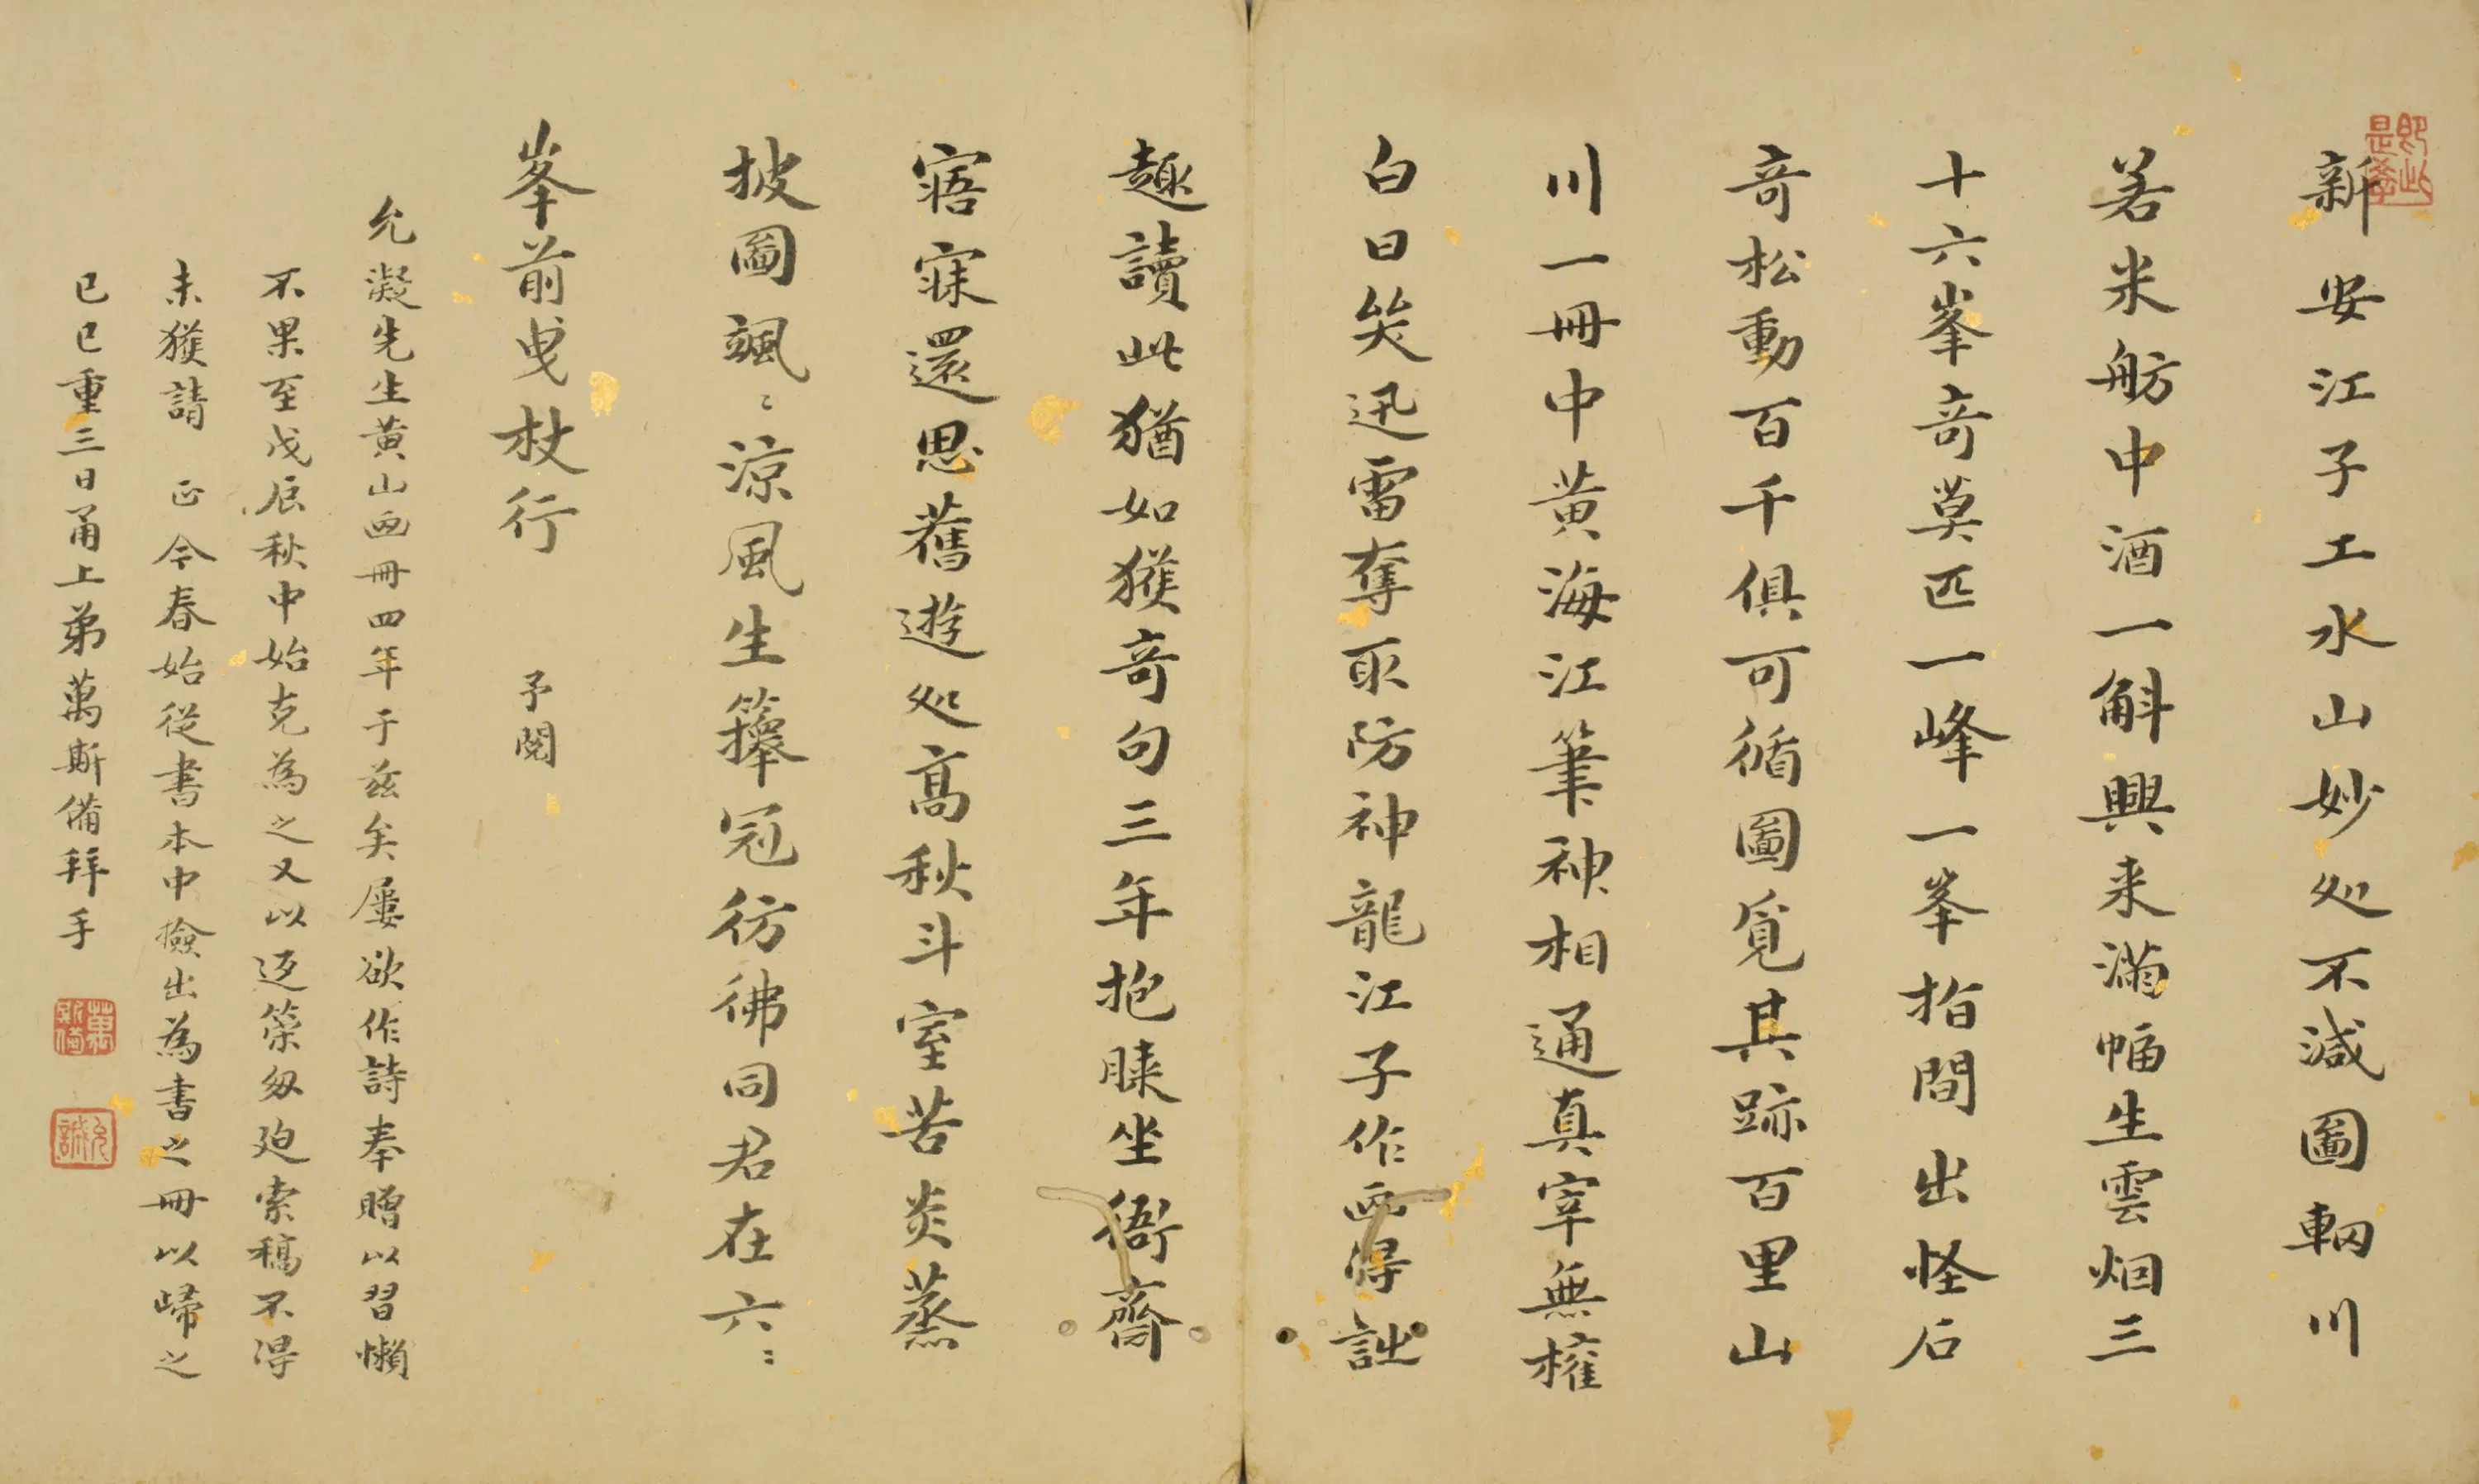 新安江子工水山妙处不減圖輞川
若米舫中酒一斛興来滿幅生雲烟三
十六峯竒莫匹一峰一峯指間出怪石
竒松動百千俱可循圖覓其跡百里山
川一冊中黄海江筆神相通真宰無權
白日笑迅雷奪取防神龍江子作画得詘
趣讀此猶如獲竒句三年抱睐坐衙齋
寤寐還思舊遊处高秋斗室苦炎蒸
披圖颯〻涼風生籜冠彷彿同君在六〻
峯前曳杖行 予閱
允凝先生黄山画冊四年于兹矣屢欲作詩奉贈以習懶
不果至戊辰秋中始克為之又以返榮匆廹索稿不得
未獲請 正今春始從書本中撿出為書之冊以歸之
己巳重三日甬上弟萬斯備拜手
萬斯備
允誠